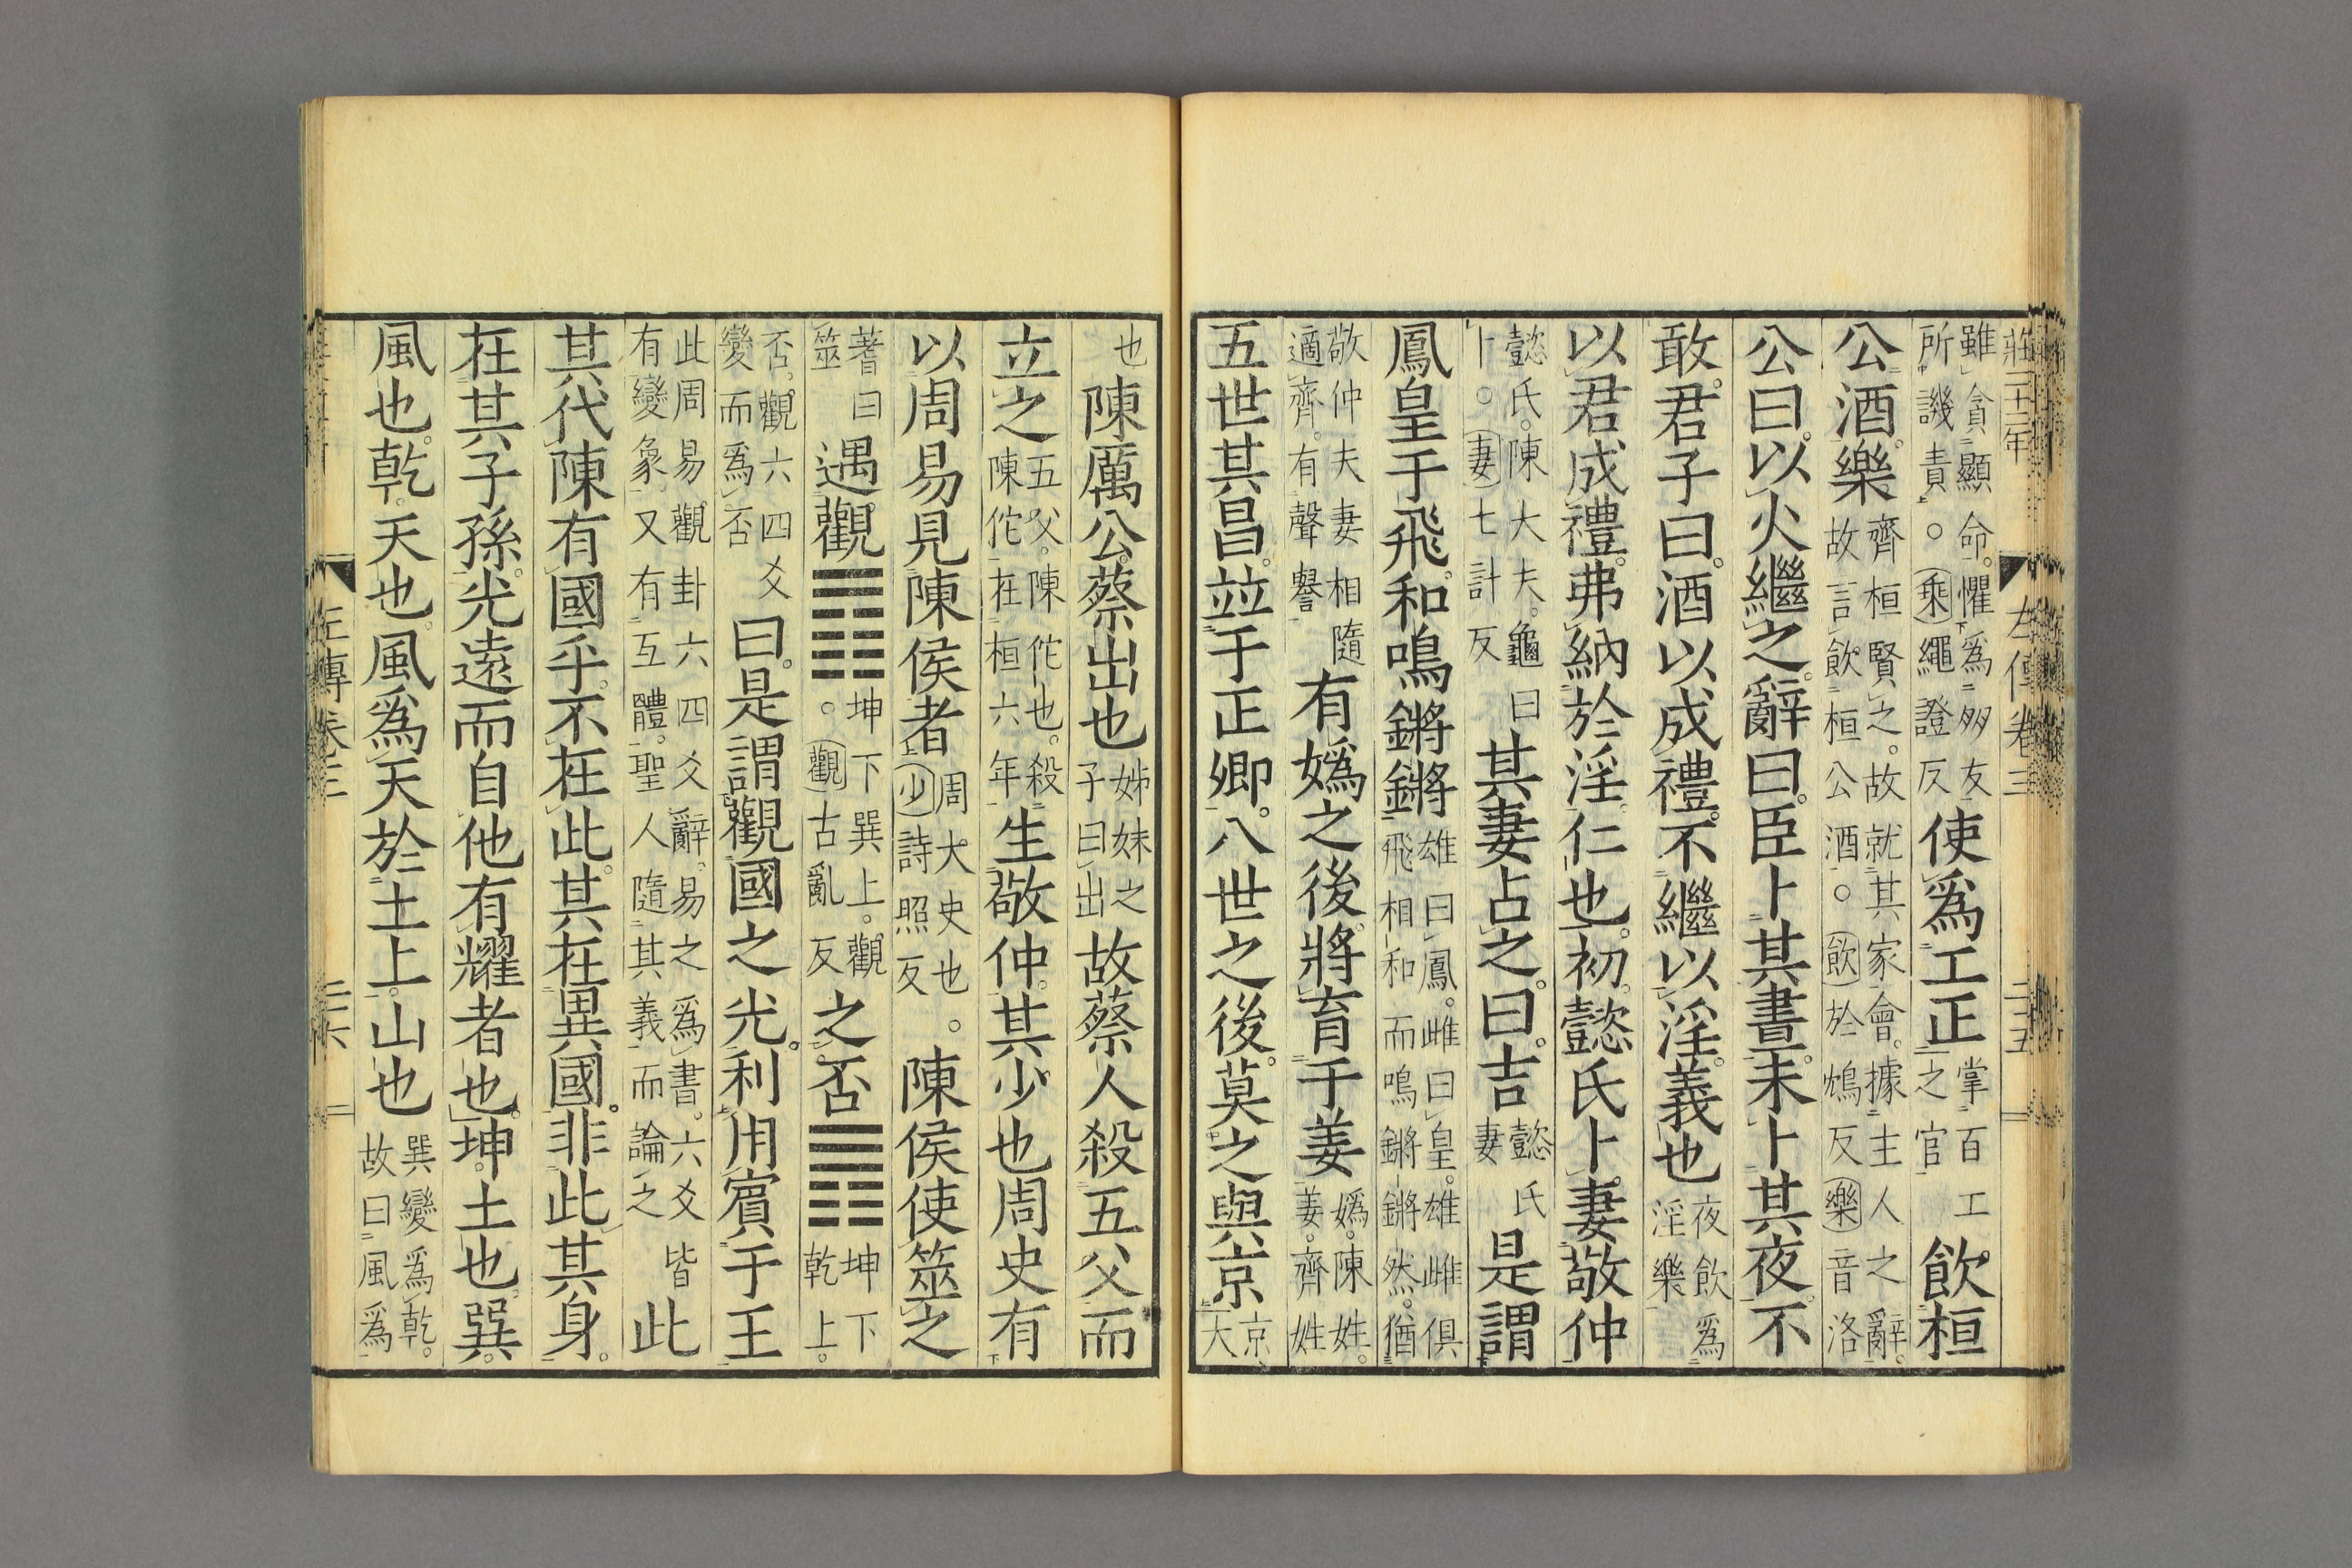 莊二十二年
左傳卷三
二十五
雖貪顯命。懼爲朋友
所譏責。○乘繩證反
使爲工正
掌百工
之官
飲桓
公酒。樂。
齊桓賢之。故就其家會。據主人之辭。
故言飲桓公酒。○飲於鴆反樂音洛
公曰。以火繼之。辭曰。臣卜其晝。未卜其夜。不
敢。君子曰。酒以成禮。不繼以淫。義也
夜飲爲
淫樂
以君成禮。弗納於淫。仁也。初。懿氏卜妻敬仲
懿氏。陳大夫。龜曰
卜。○妻七計反
其妻占之。曰。吉
懿氏
妻
是謂
鳳皇于飛。和鳴鏘鏘
雄曰鳳。雌曰皇。雄雌俱
飛相和而鳴鏘鏘然。猶
敬仲夫妻相隨
適齊。有聲譽
有嬀之後。將育于姜
嬀。陳姓。
姜。齊姓
五世其昌。竝于正卿。八世之後。莫之與京
京
大
也
陳厲公。蔡出也
姊妹之
子曰出
故蔡人殺五父而
立之
五父。陳佗也。殺
陳佗在桓六年
生敬仲。其少也周史有
以周易見陳侯者
周大史也
少詩照反
。陳侯使筮之
蓍曰
筮
遇觀䷓
坤下巽上。觀
○觀古亂反
之否䷋
坤下
乾上。
否。觀六四爻
變而爲否
曰。是謂觀國之光。利用賓于王
此周易觀卦六四爻辭。易之爲書。六爻皆
有變象又有互體。聖人隨其義而論之
此
其代陳有國乎。不在此。其在異國。非此其身。
在其子孫。光遠而自他有耀者也。坤。土也。巽。
風也。乾。天也。風爲天於土上。山也
巽變爲乾。
故曰風爲
左傳卷三
二十六